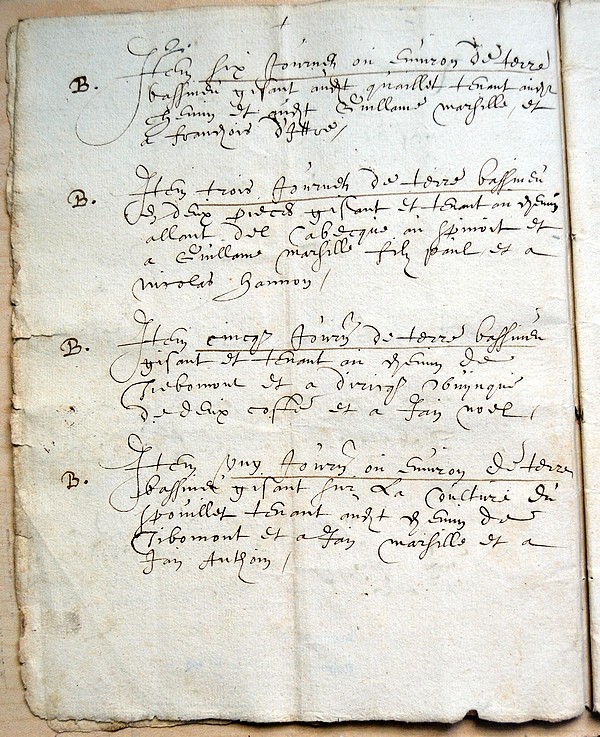 B. Item six Journelz ou environ de terre
bassiere gisant audt quaillet tenant audt
chemin et audt Guillame marsille et
a franchois d'Ittre /
B. Item trois Journelz de terre bassiere
en deux pieces gisant et tenant au chemin
allant del Cabecque au spinoit et
a Guillame marsille filz paul et a
nicolas hannon /
B. Item cincq Journelz de terre bassiere
gisant et tenant au chemin de
Tiebomont et a
de deux costez et a Jan noel /
B. Item ung Journel ou environ de terre
bassiere gisant sur La Couture du
spouillet tenant audt chemin de
Tibomont et a Jan marsille et a
Jan Anthoin /